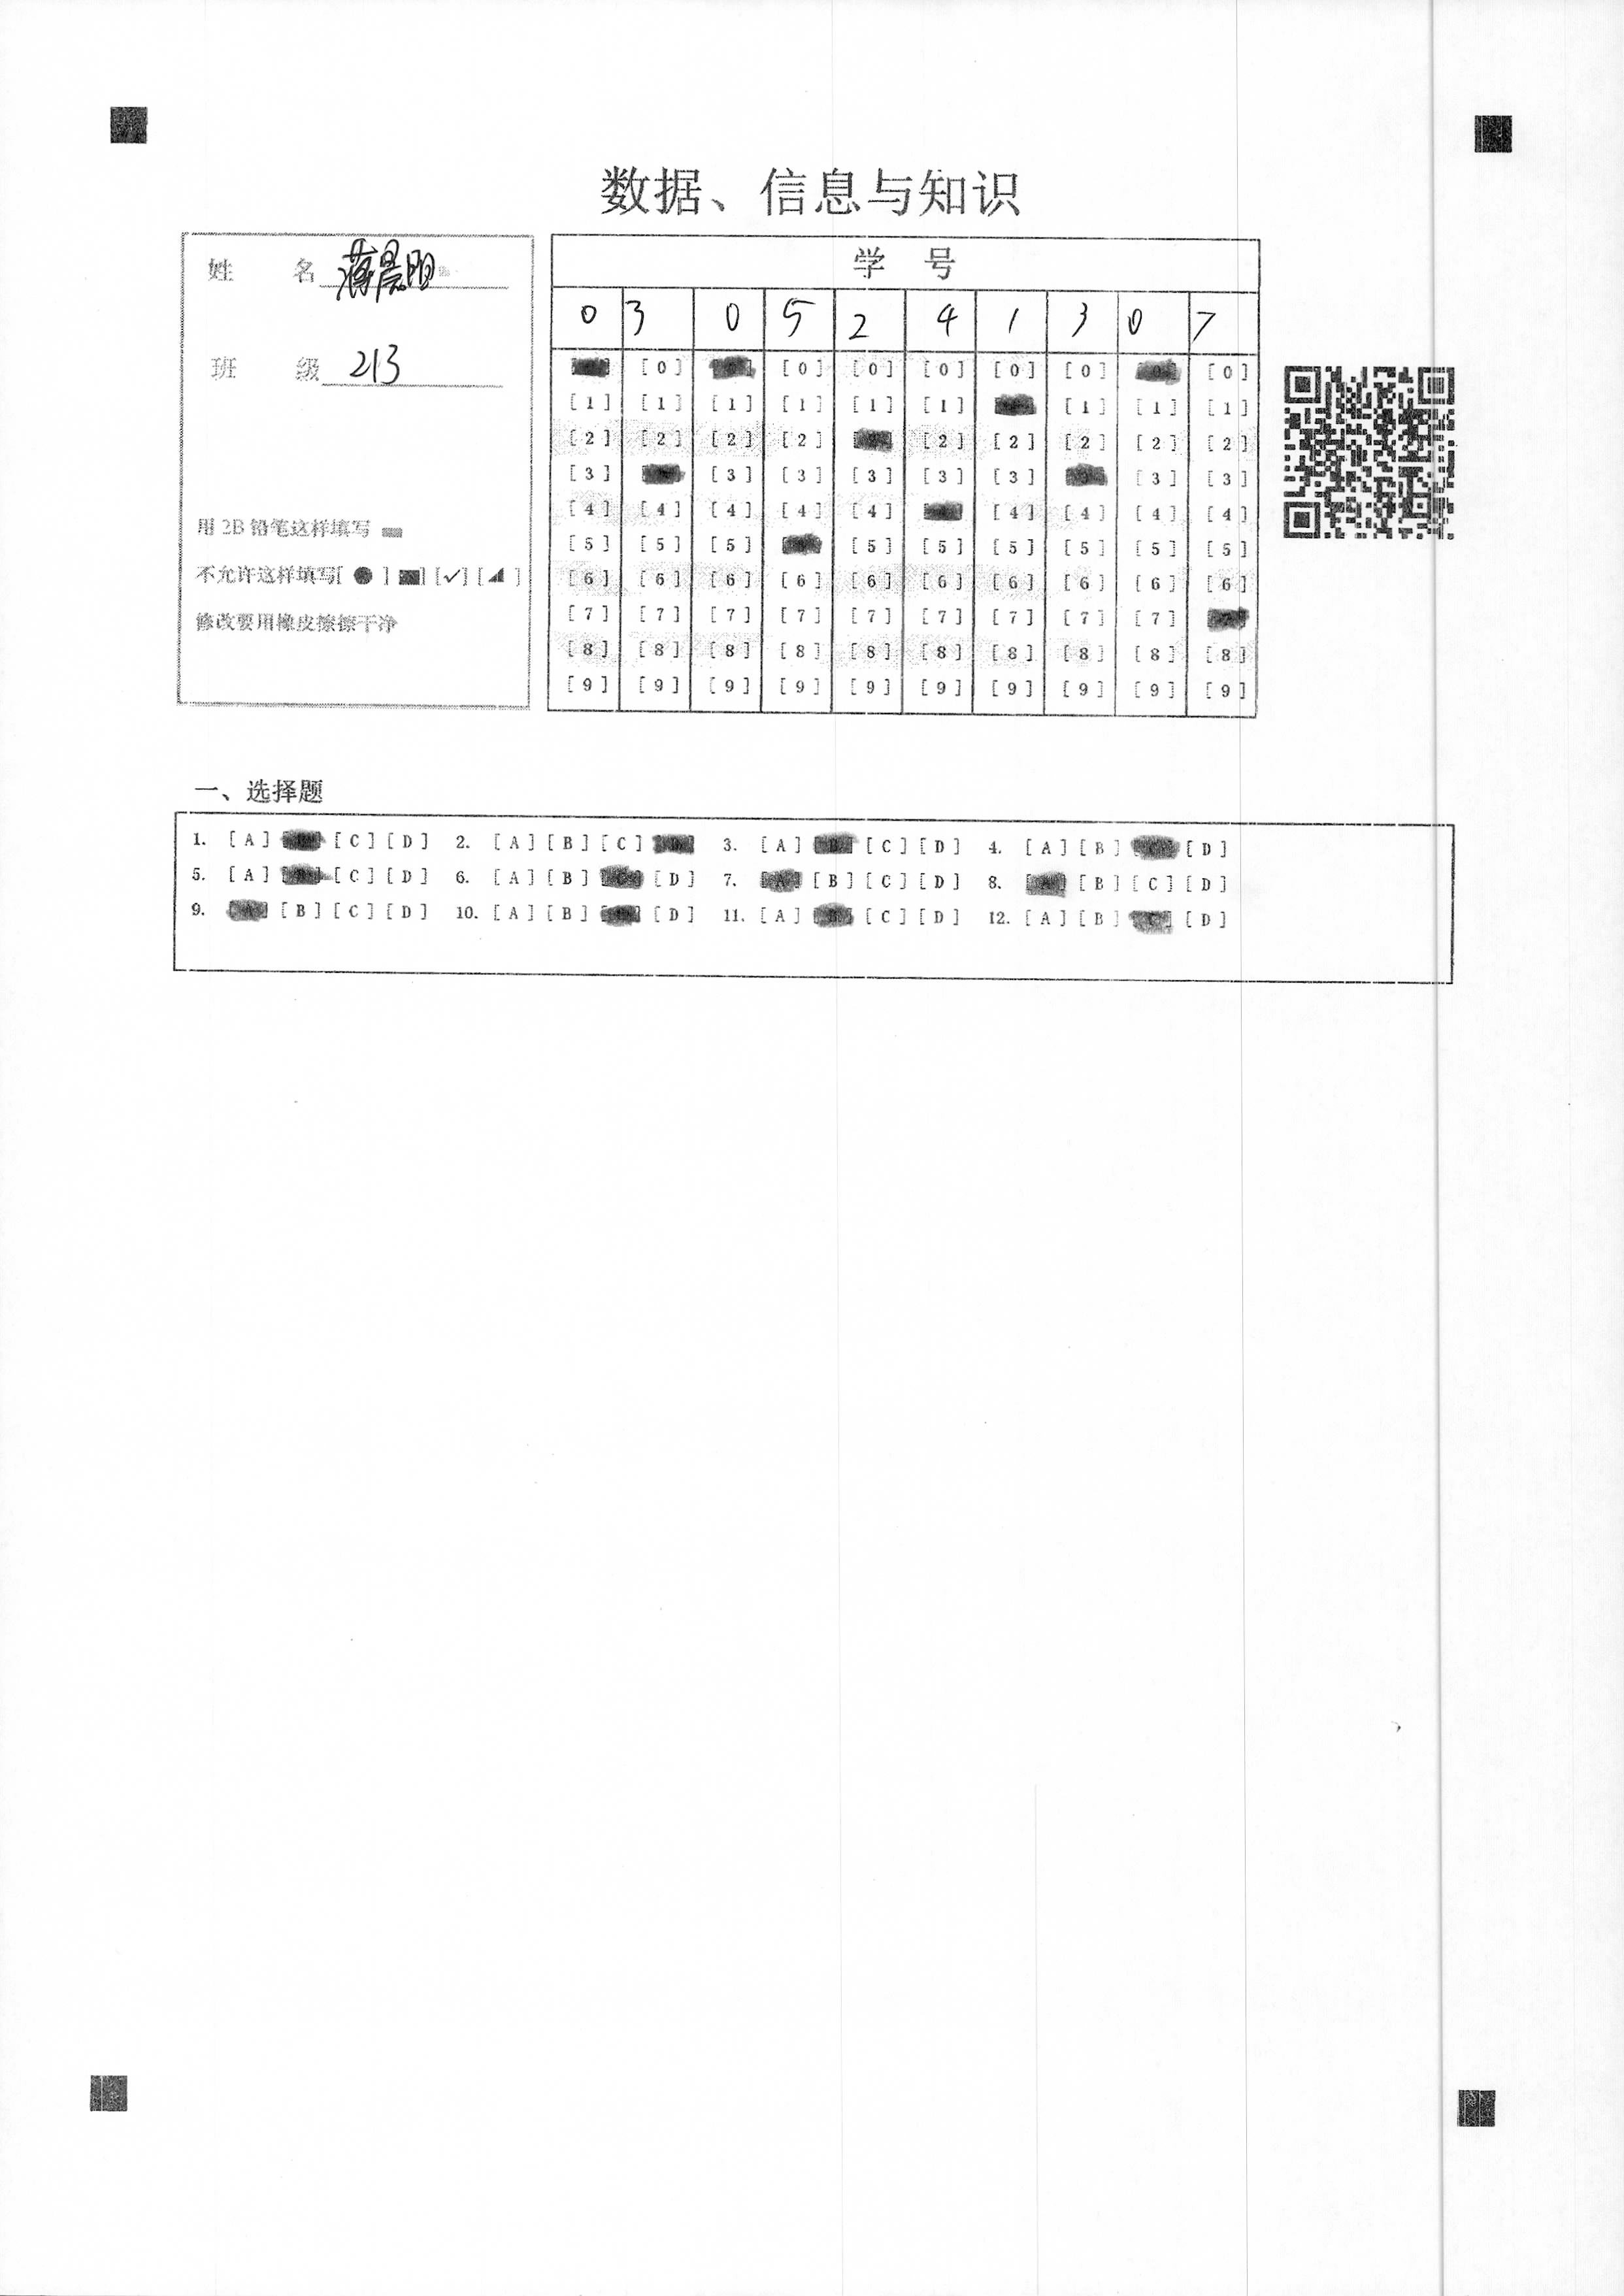 数据、信息与知识
姓 名 蒋晨阳
班 级 213
用 2B 铅笔这样填写
不允许这样填写[ ● ] [■] [✓] [◢ ]
修改要用橡皮擦擦干净
学 号
0 3 0 5 2 4 1 3 0 7
[0] [0] [0] [0] [0] [0] [0] [0]
[1] [1] [1] [1] [1] [1] [1] [1] [1]
[2] [2] [2] [2] [2] [2] [2] [2] [2]
[3] [3] [3] [3] [3] [3] [3] [3]
[4] [4] [4] [4] [4] [4] [4] [4] [4]
[5] [5] [5] [5] [5] [5] [5] [5] [5]
[6] [6] [6] [6] [6] [6] [6] [6] [6] [6]
[7] [7] [7] [7] [7] [7] [7] [7] [7]
[8] [8] [8] [8] [8] [8] [8] [8] [8] [8]
[9] [9] [9] [9] [9] [9] [9] [9] [9] [9]
一、选择题
1. [A] [C] [D] 2. [A] [B] [C] 3. [A] [C] [D] 4. [A] [B] [D]
5. [A] [C] [D] 6. [A] [B] [D] 7. [A] [B] [C] [D] 8. [A] [B] [C] [D]
9. [A] [B] [C] [D] 10. [A] [B] [D] 11. [A] [B] [C] [D] 12. [A] [B] [C] [D]